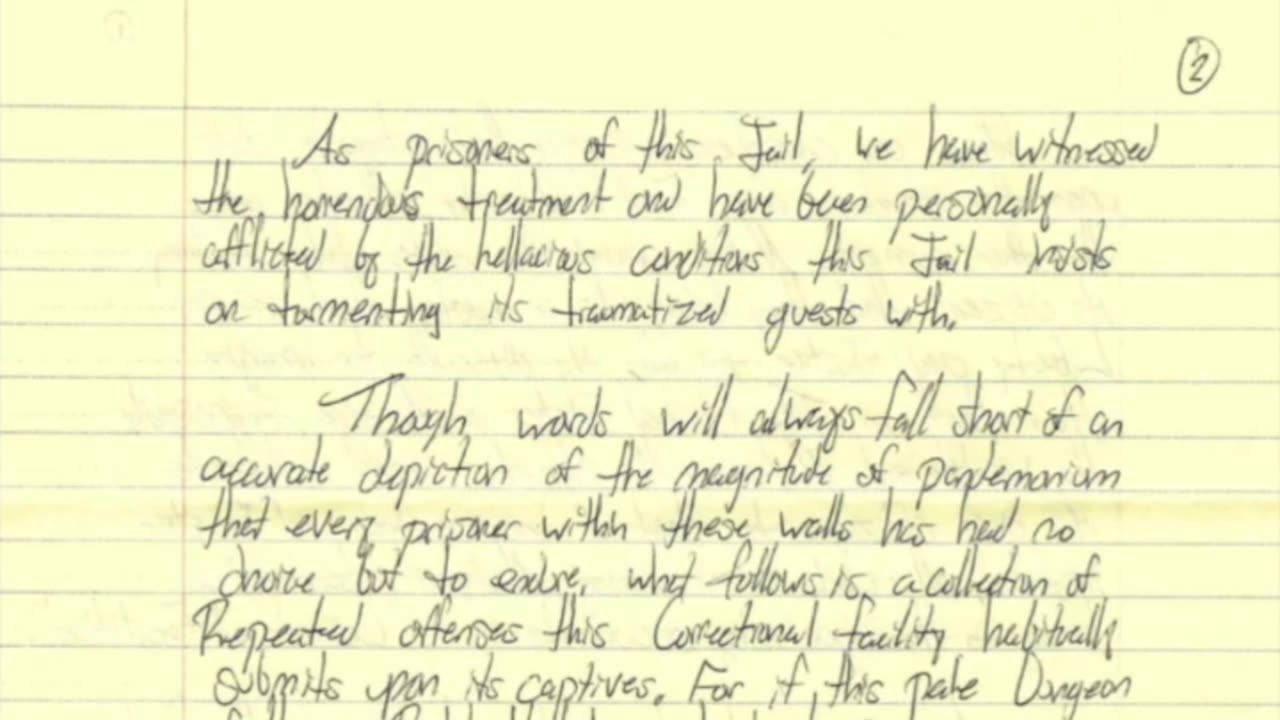 2
As prisoners of this Jail, we have witnessed
the horrendous treatment and have been personally
afflicted by the hellacious conditions this Jail insists
on tormenting its traumatized guests with.
Though words will always fall short of an
accurate depiction of the magnitude of pandemonium
that every prisoner within these walls has had no
choice but to endure, what follows is a collection of
Repeated offenses this Correctional facility habitually
submits upon its captives. For if this Dungeon